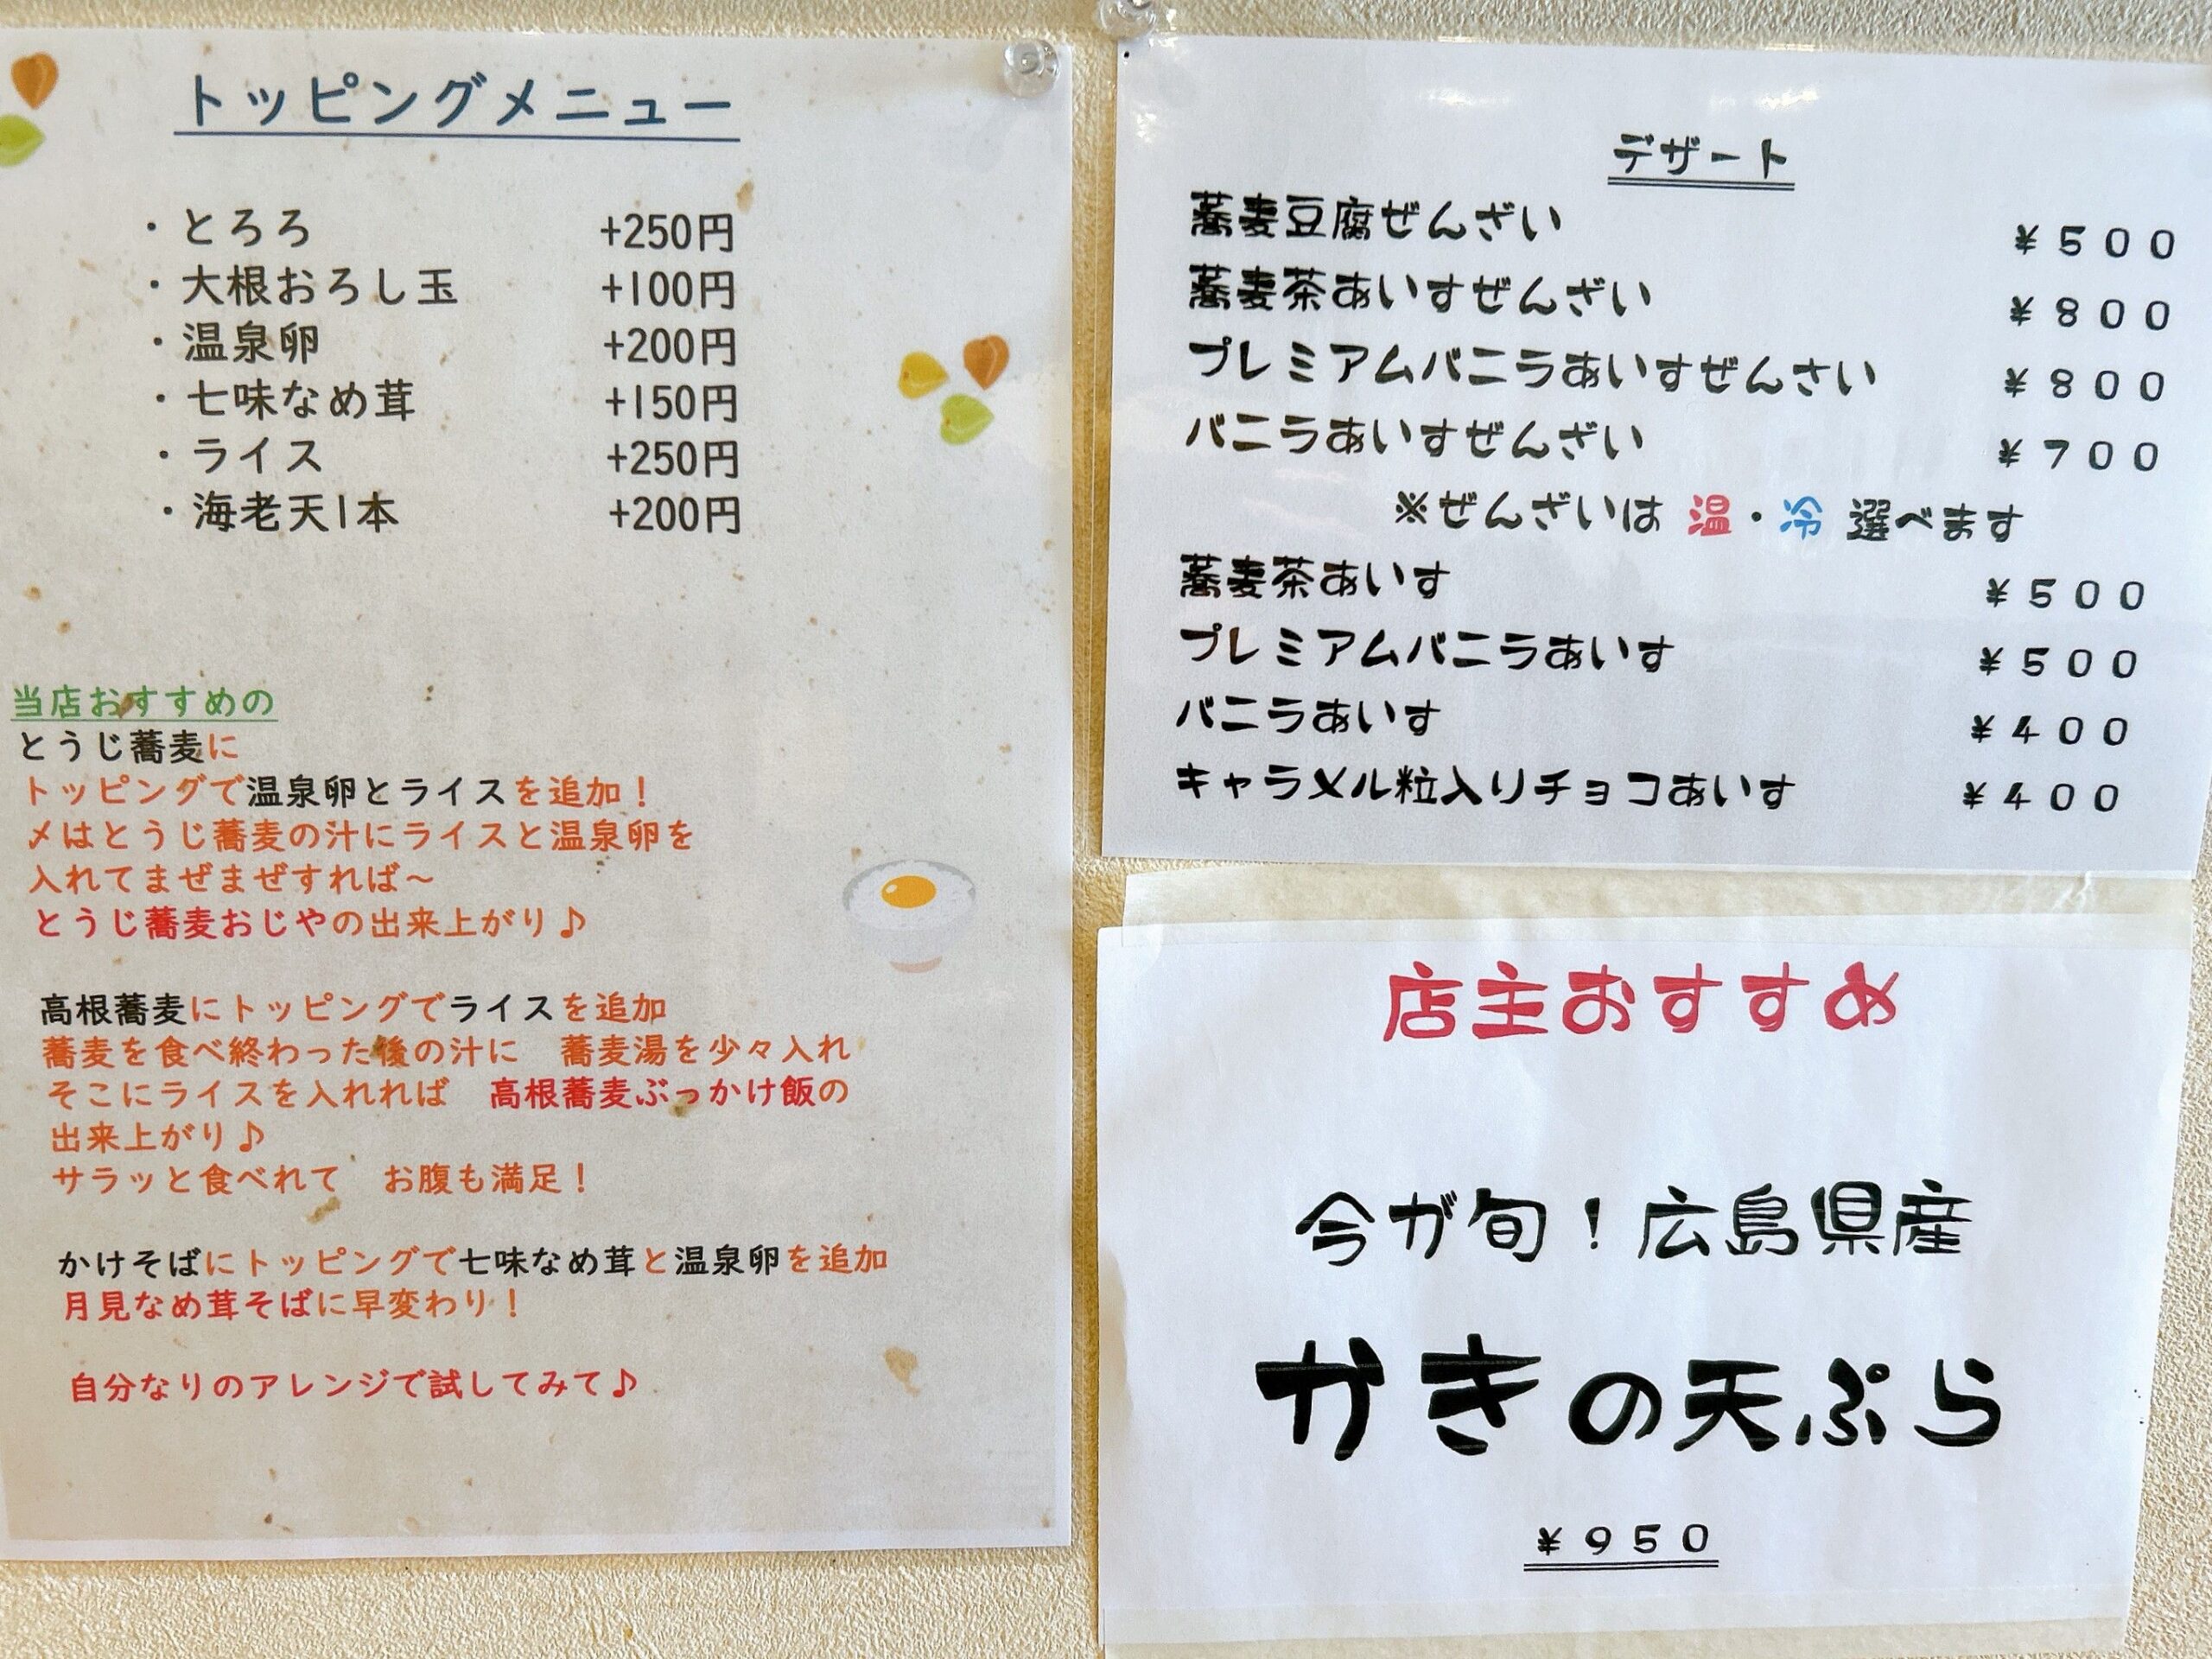 トッピングメニュー
・とろろ +250円
・大根おろし玉 +100円
・温泉卵 +200円
・七味なめ茸 +150円
・ライス +250円
・海老天1本 +200円
当店おすすめの
とうじ蕎麦に
トッピングで温泉卵とライスを追加!
〆はとうじ蕎麦の汁にライスと温泉卵を
入れてまぜまぜすれば～
とうじ蕎麦おじやの出来上がり♪
高根蕎麦にトッピングでライスを追加
蕎麦を食べ終わった後の汁に 蕎麦湯を少々入れ
そこにライスを入れれば 高根蕎麦ぶっかけ飯の
出来上がり♪
サラッと食べれて お腹も満足!
かけそばにトッピングで七味なめ茸と温泉卵を追加
月見なめ茸そばに早変わり!
自分なりのアレンジで試してみて♪
デザート
蕎麦豆腐ぜんざい ¥500
蕎麦茶あいすぜんざい ¥800
プレミアムバニラあいすぜんさい ¥800
バニラあいすぜんざい ¥700
※ぜんざいは 温・冷 選べます
蕎麦茶あいす ¥500
プレミアムバニラあいす ¥500
バニラあいす ¥400
キャラメル粒入りチョコあいす ¥400
店主おすすめ
今が旬!広島県産
かきの天ぷら
¥950